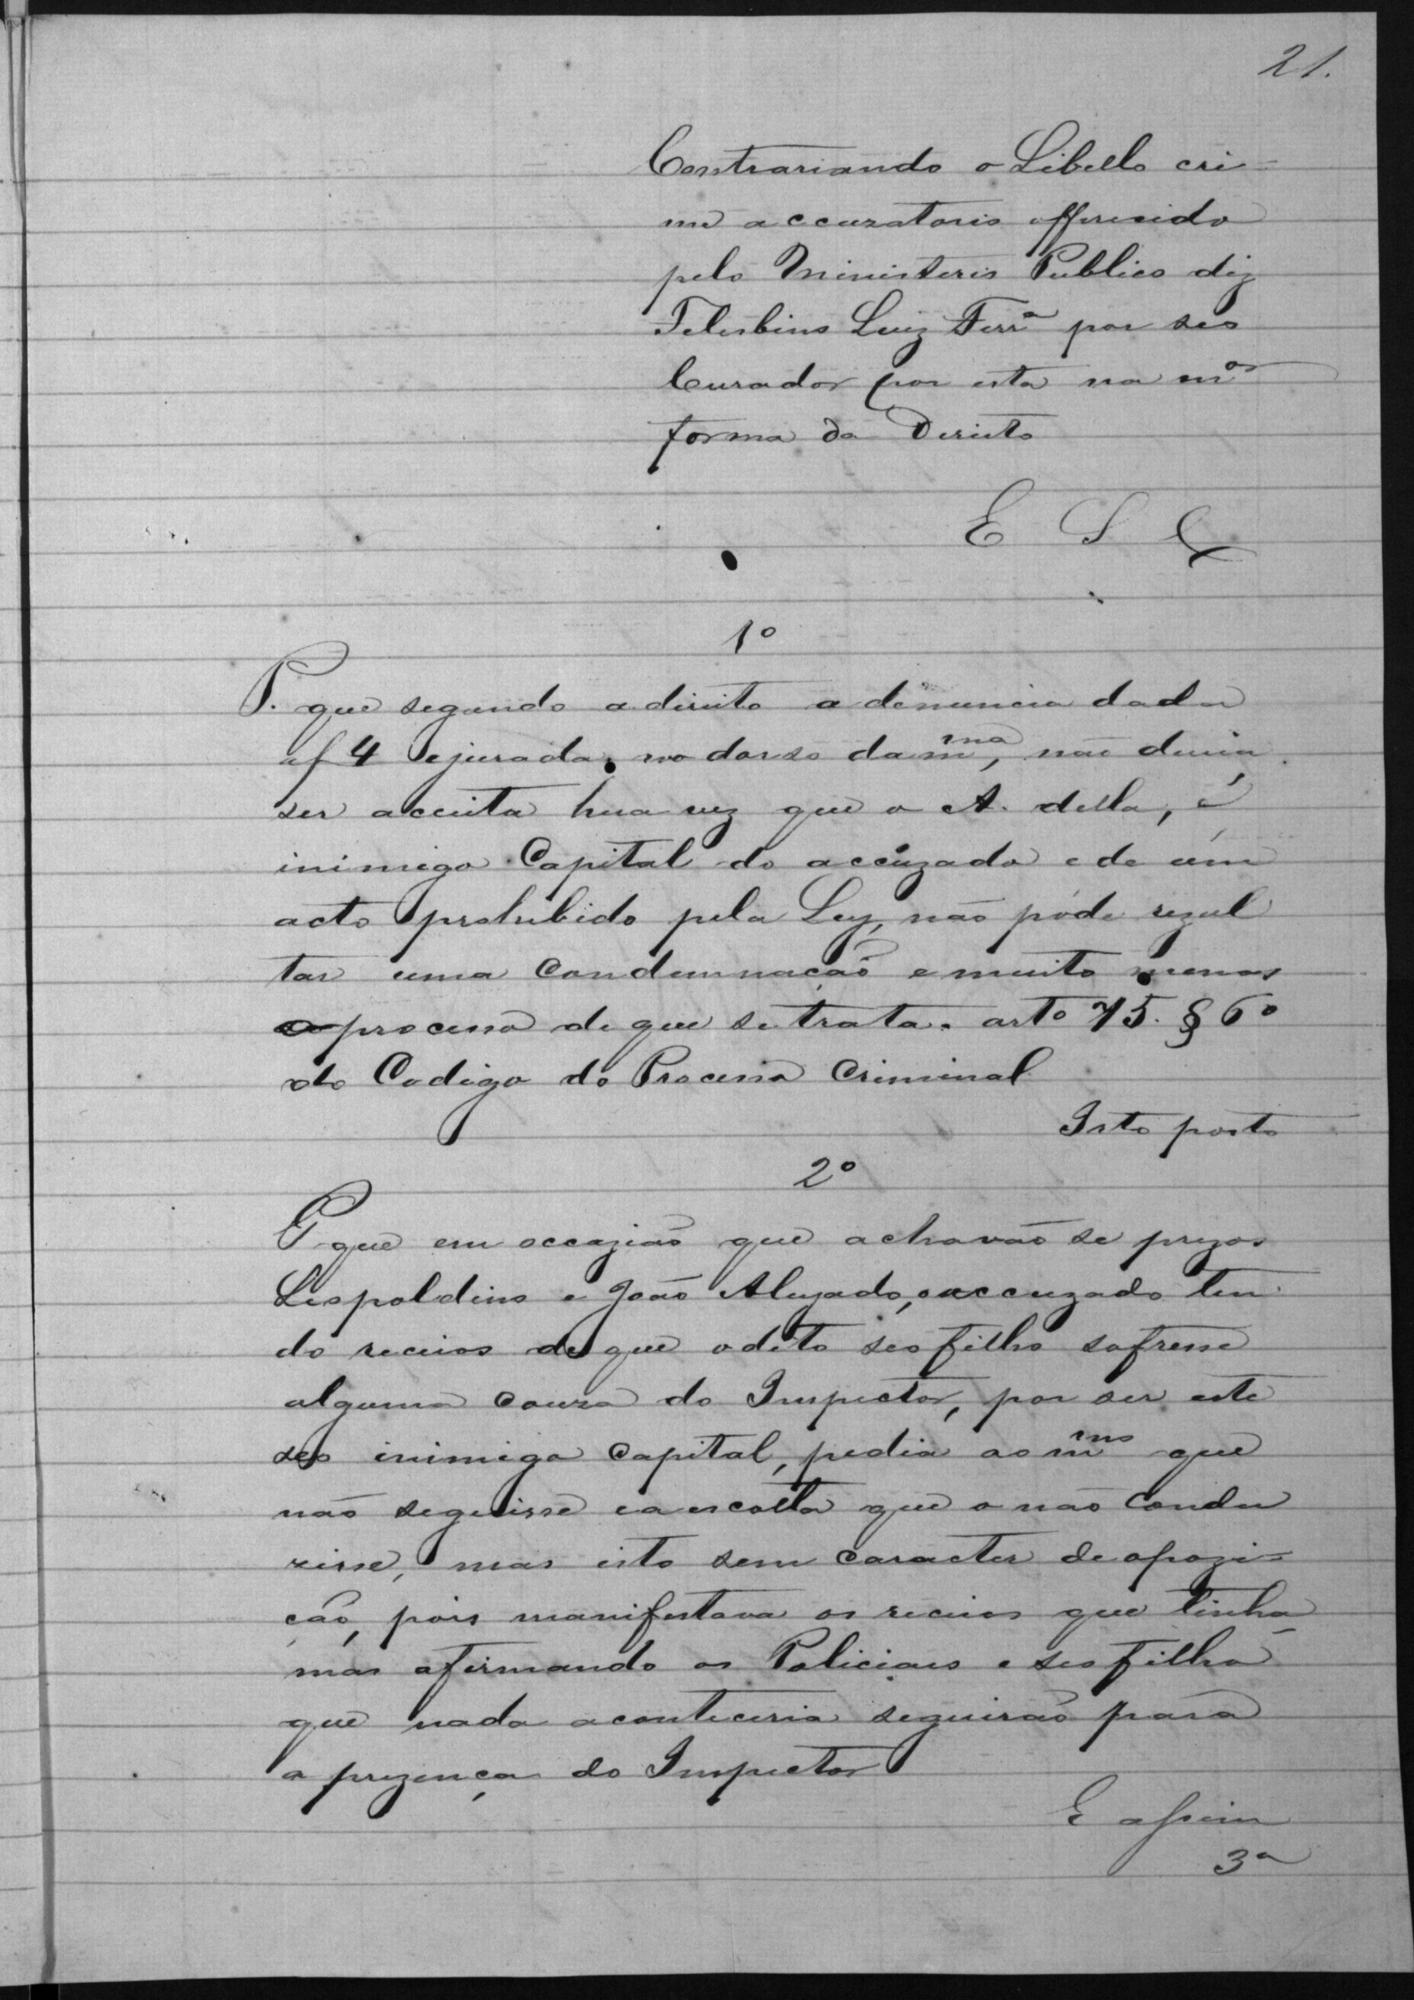 21.
Contrariando o Libello cri-
me accuzatorio offerecido
pelo Ministerio Publico diz
Luiz Ferrª por seo
Curador por esta na mor
forma da Dereito
E S C
1º
P. que segundo a direito a denuncia dada
af 4 ejurada no dorso da mma, não devia
ser acceita hua vez que o A. della, é
inimigo Capital do accuzado e de úm
acto prohibido pela Ley, não póde rezul
tar uma Condemnação e muito menos
o processo de que se trata. artº 75. § 6º
do Codigo do Processo Criminal
Isto posto
2º
P que em occazião que achavão se prezos
Leopoldino e João Aleyado, o accuzado ten
do receios de que o dito seo filho sofresse
alguma couza do Inspector, por ser este
seo inimigo Capital, pedia ao mmo que
não seguisse e a escolta que o não Condu
zisse, mas isto sem caracter de opozi=
ção, pois manifestava os receios que tinha
mas afirmando os Policiaes e seo filho
que nada aconteceria seguirão para
a prezença do Inspector
E assim
3º